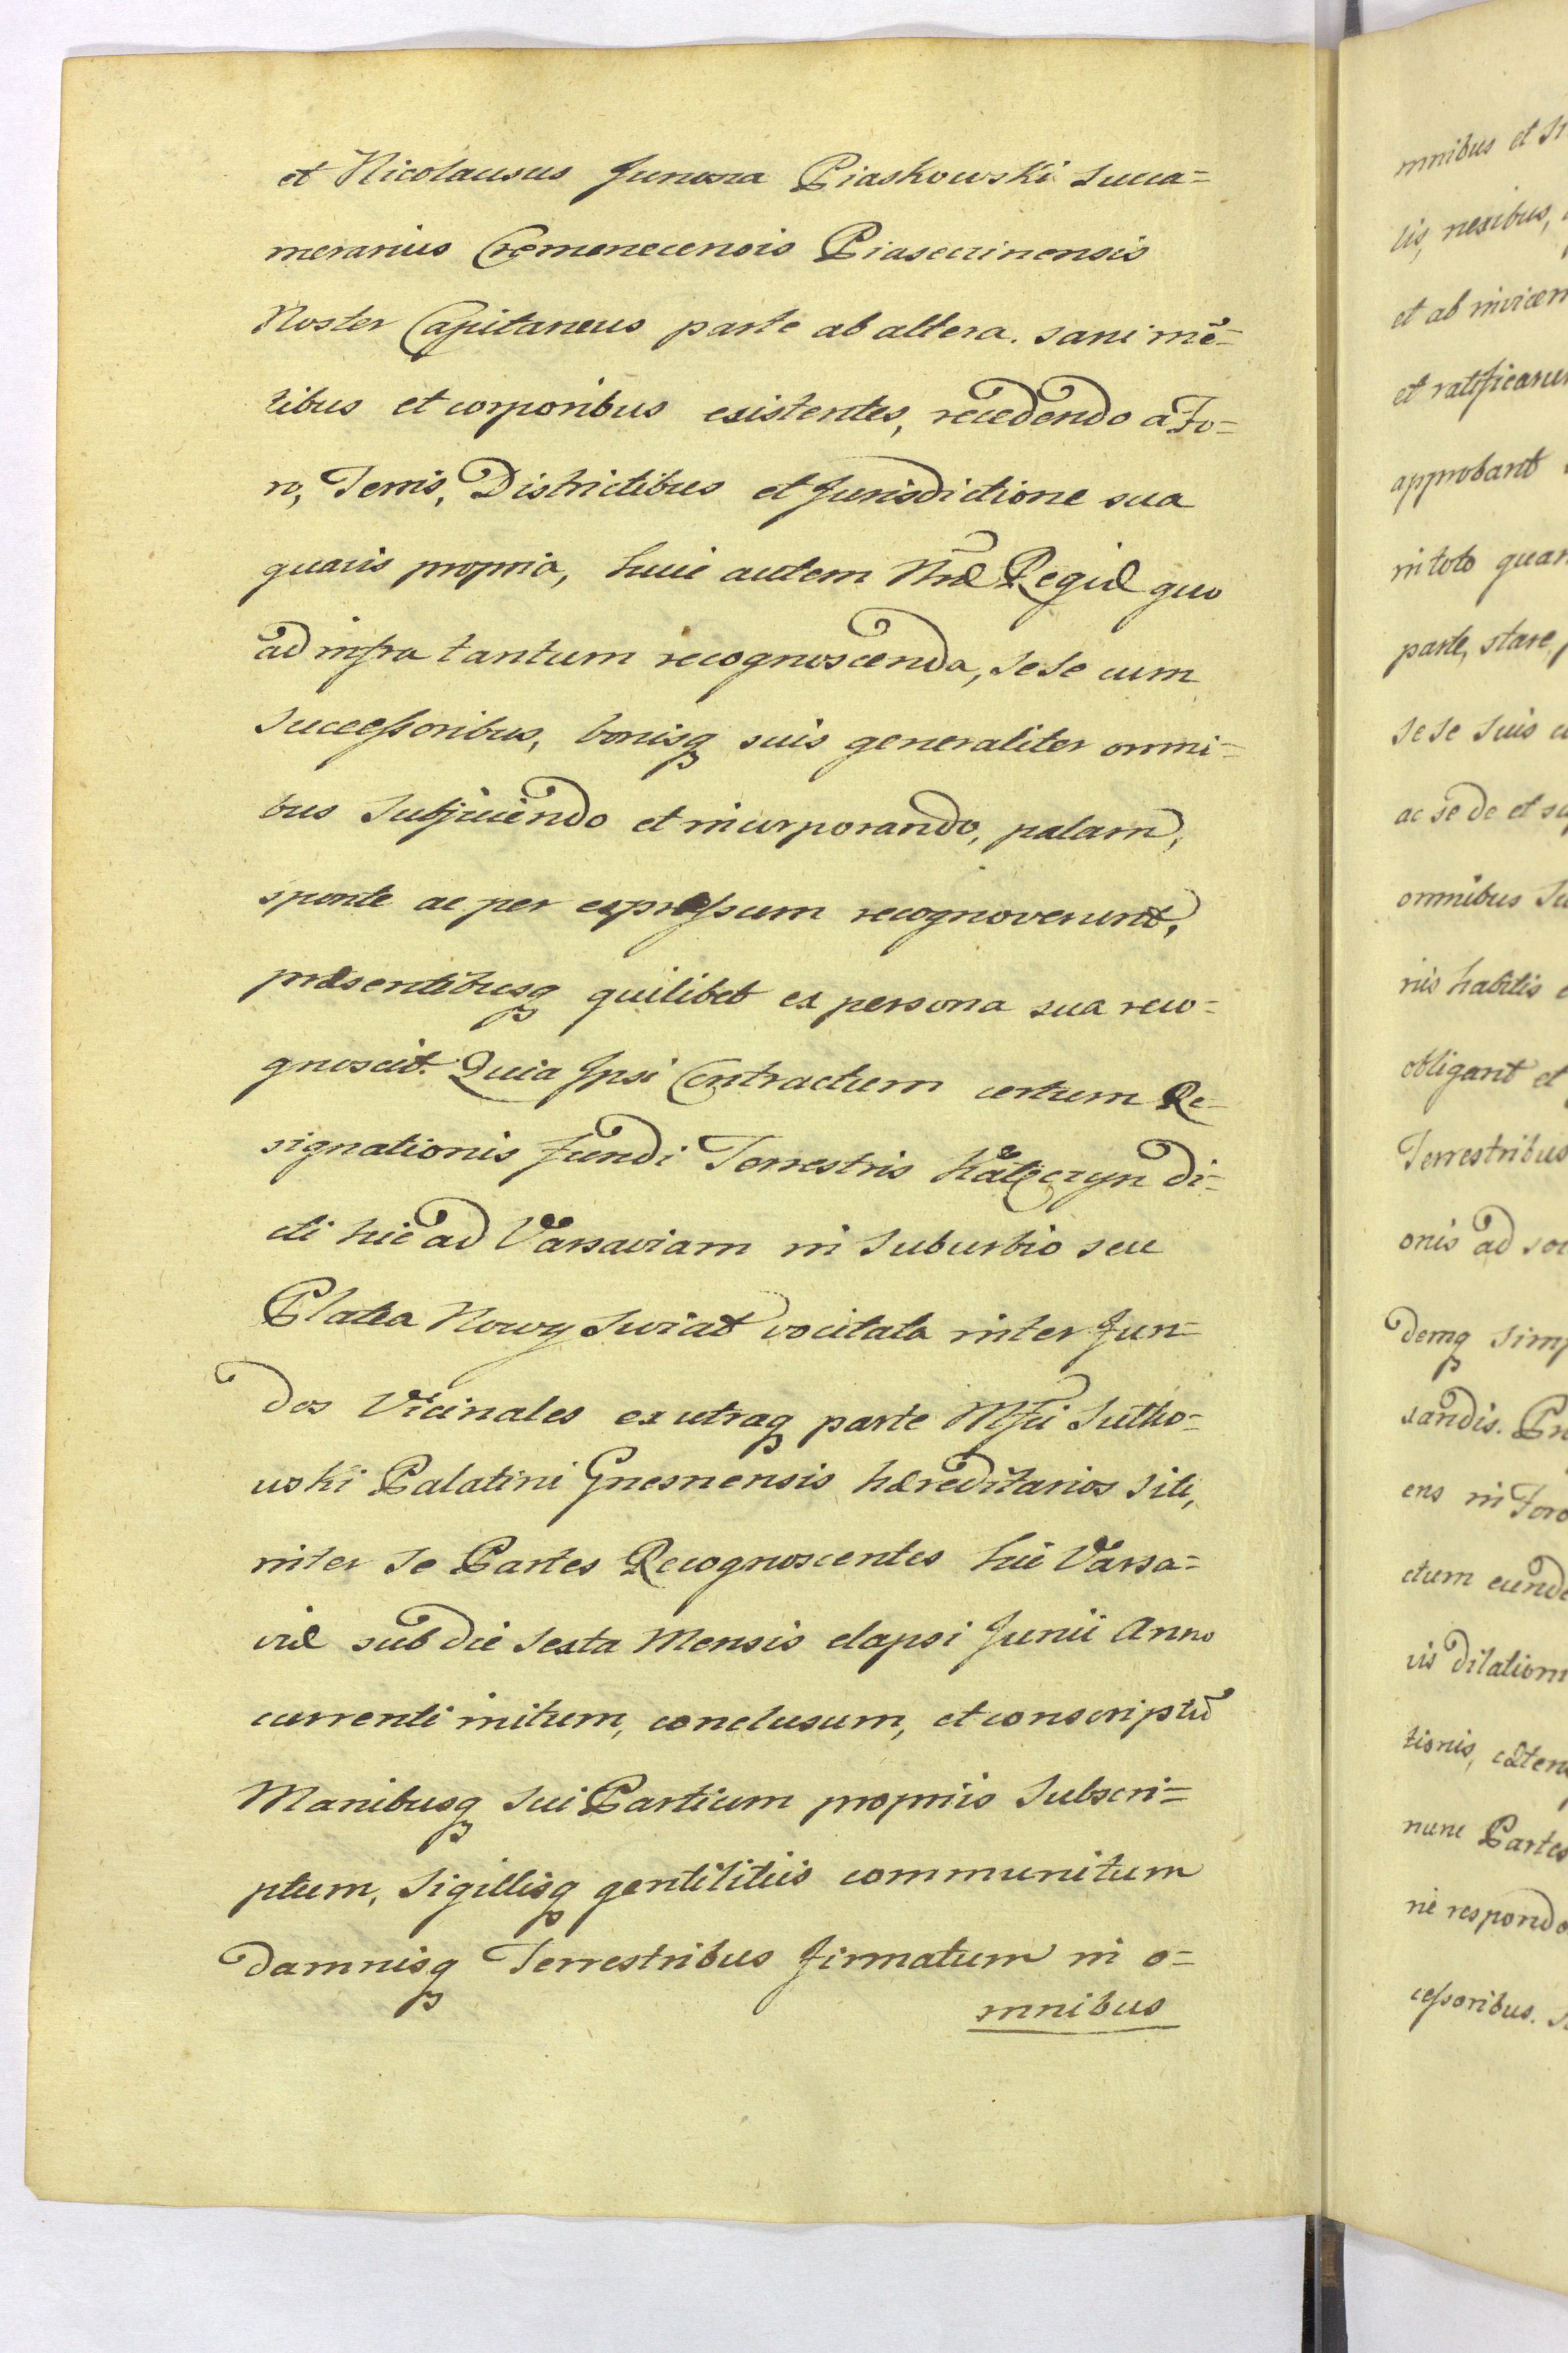 et Nicolausus Junosza Piaskowski Succa=
merarius Cremenecensis Piasecinensis
Noster Capitaneus parte ab altera. sani mē=
tibus et corporibus existentes, recedendo a Fo=
ro, Terris, Districtibus et Jurisdictione sua
quavis propria, huic autem Nræ Regiæ quo
ad infra tantum recognoscenda, sese cum
Successoribus, bonisq suis generaliter omni=
bus Subjiciendo et incorporando, palam,
sponte ac per expressum recognoverunt,
præsentibusq quilibet ex persona sua reco=
gnoscit. Quia Ipsi Contractum certum Re=
signationis fundi Terrestris Kałęczyn di=
cti hic ad Varsaviam in Suburbio seu
Platea Nowy Swiat vocitata inter Fun=
dos Vicinales ex utraq parte Mfci Sułko=
wski Palatini Gnesnensis hæreditarios siti,
inter se Partes Recognoscentes hic Varsa=
viæ sub die Sexta Mensis elapsi Junii Anno
currenti initum, conclusum, et conscriptū
Manibusq sui Partium propriis Subscri=
ptum, Sigillisq gentilitiis communitum
damnisq Terrestribus firmatum in o=
mnibus
mnibus et
lis, nexibus,
et ab invicem
et ratificarun
approbant
in toto quam
parte, stare
Sese Suis
ac se de et
omnibus
nis habitis
obligant et
Terrestribus
onis ad
demq
sandis.
ens in Foro
ctum eunde
vis dilationi
tionis,
nunc Partes
ne respondo
cessoribus.